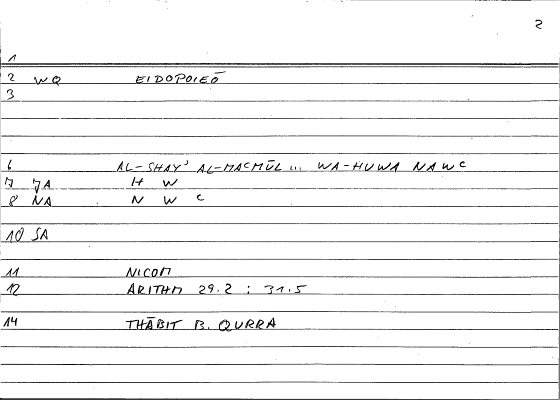 2
1
2 WQ EIDOPOIEŌ
3
6 AL-SHAYʾ AL-MAᶜMŪL ... WA-HUWA NAWᶜ
7 JA H W
8 NA N W ᶜ
10 SA
11 NICOM
12 ARITHM 29.2 : 31.5
14 THĀBIT B. QURRA